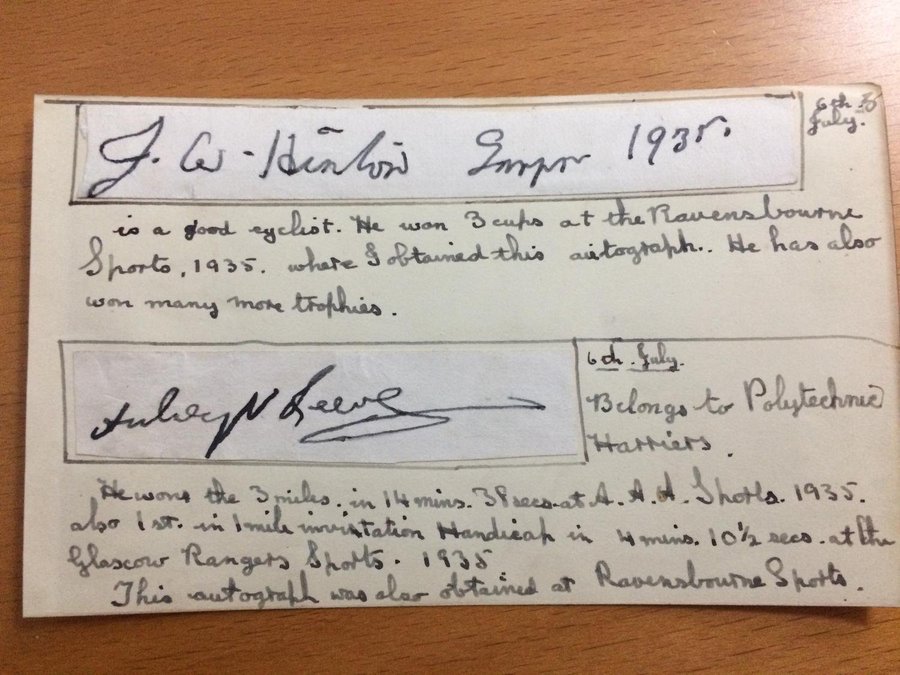 J. W. Hinton 1935.
6th
July.
is a good cyclist. He won 3 cups at the Ravensbourne
Sports, 1935. where I obtained this autograph. He has also
won many more trophies.
6th. July.
Aubrey V Reeve
Belongs to Polytechnic
Harriers.
He won the 3 miles. in 14 mins. 38 secs. at A. A. A. Sports. 1935.
also 1st. in 1 mile invitation Handicap in 4 mins. 10½ secs. at the
Glascow Rangers Sports. 1935
This autograph was also obtained at Ravensbourne Sports.